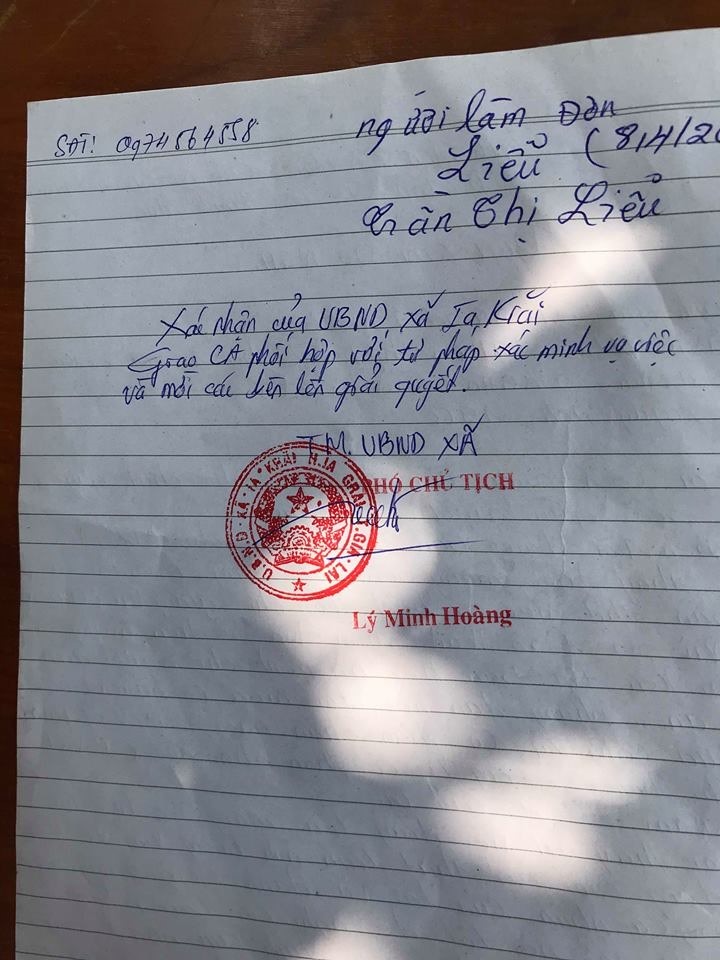 SĐT: 0974564558
người làm Đơn
Liễu (8/4/20
Trần Thị Liễu
Xác nhận của UBND xã Ia Krăi
Giao CA phối hợp với tư pháp xác minh vụ việc
và mời các bên lên giải quyết.
TM. UBND XÃ
PHÓ CHỦ TỊCH
U.B.N.D XÃ IA KHAI H.IA GRAI T.GIA LAI
Lý Minh Hoàng